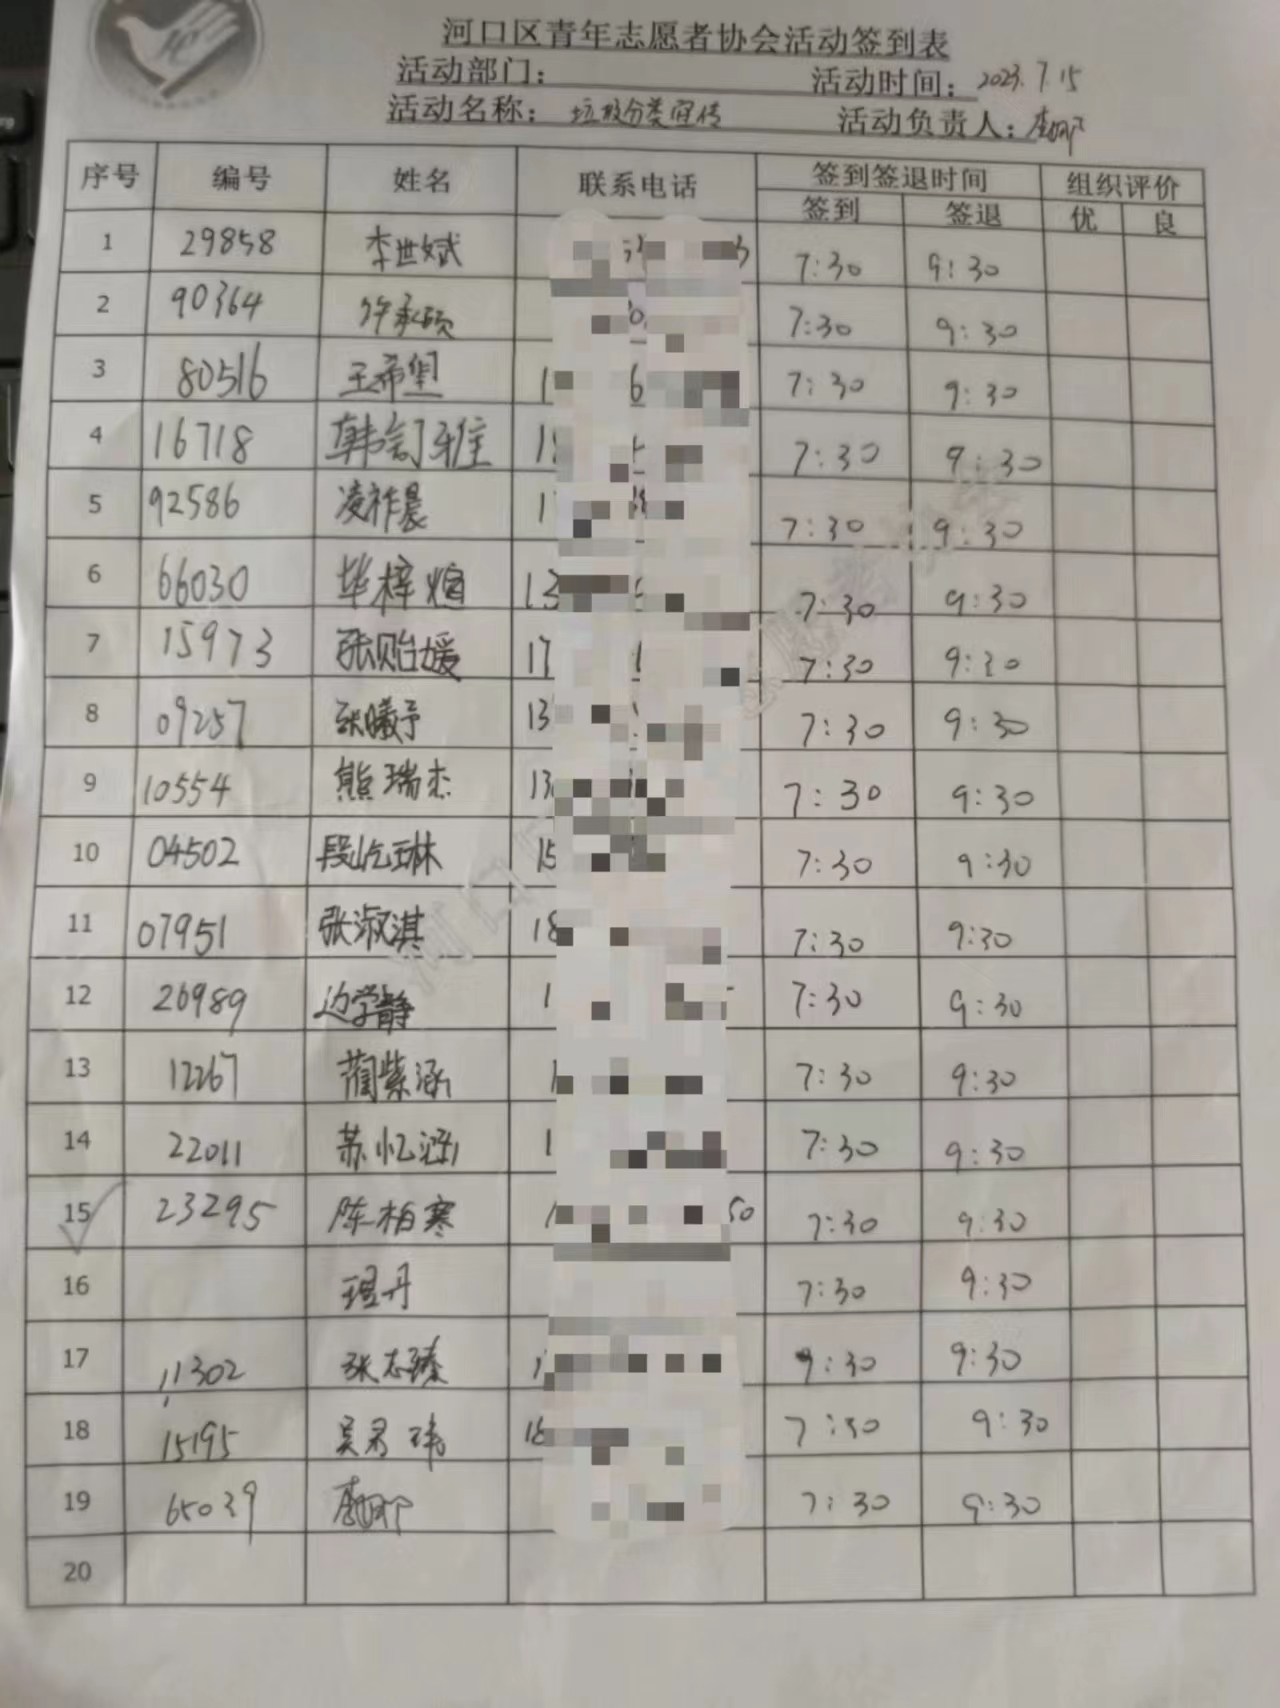 河口区青年志愿者协会活动签到表
活动部门： 活动时间：2023.7.15
活动名称：垃圾分类宣传 活动负责人：
序号 编号 姓名 联系电话 签到签退时间 组织评价
签到 签退 优 良
1 29858 李世斌 7:30 9:30
2 90364 许承硕 7:30 9:30
3 80516 王希 1 6 7:30 9:30
4 16718 韩 雅 7:30 9:30
5 92586 凌祚晨 1 7:30 9:30
6 66030 毕梓煊 13 7:30 9:30
7 15973 张贻媛 17 7:30 9:30
8 09257 张曦予 13 7:30 9:30
9 10554 熊瑞杰 13 7:30 9:30
10 04502 段屹琳 15 7:30 9:30
11 07951 张淑淇 18 7:30 9:30
12 26989 边学静 1 7:30 9:30
13 12267 蔺紫涵 1 7:30 9:30
14 22011 苏忆涵 1 7:30 9:30
15 23295 陈柏寒 1 50 7:30 9:30
16 丹 7:30 9:30
17 11302 张志臻 1 9:30
18 15195 吴君玮 18 7:30 9:30
19 65039 7:30 9:30
20